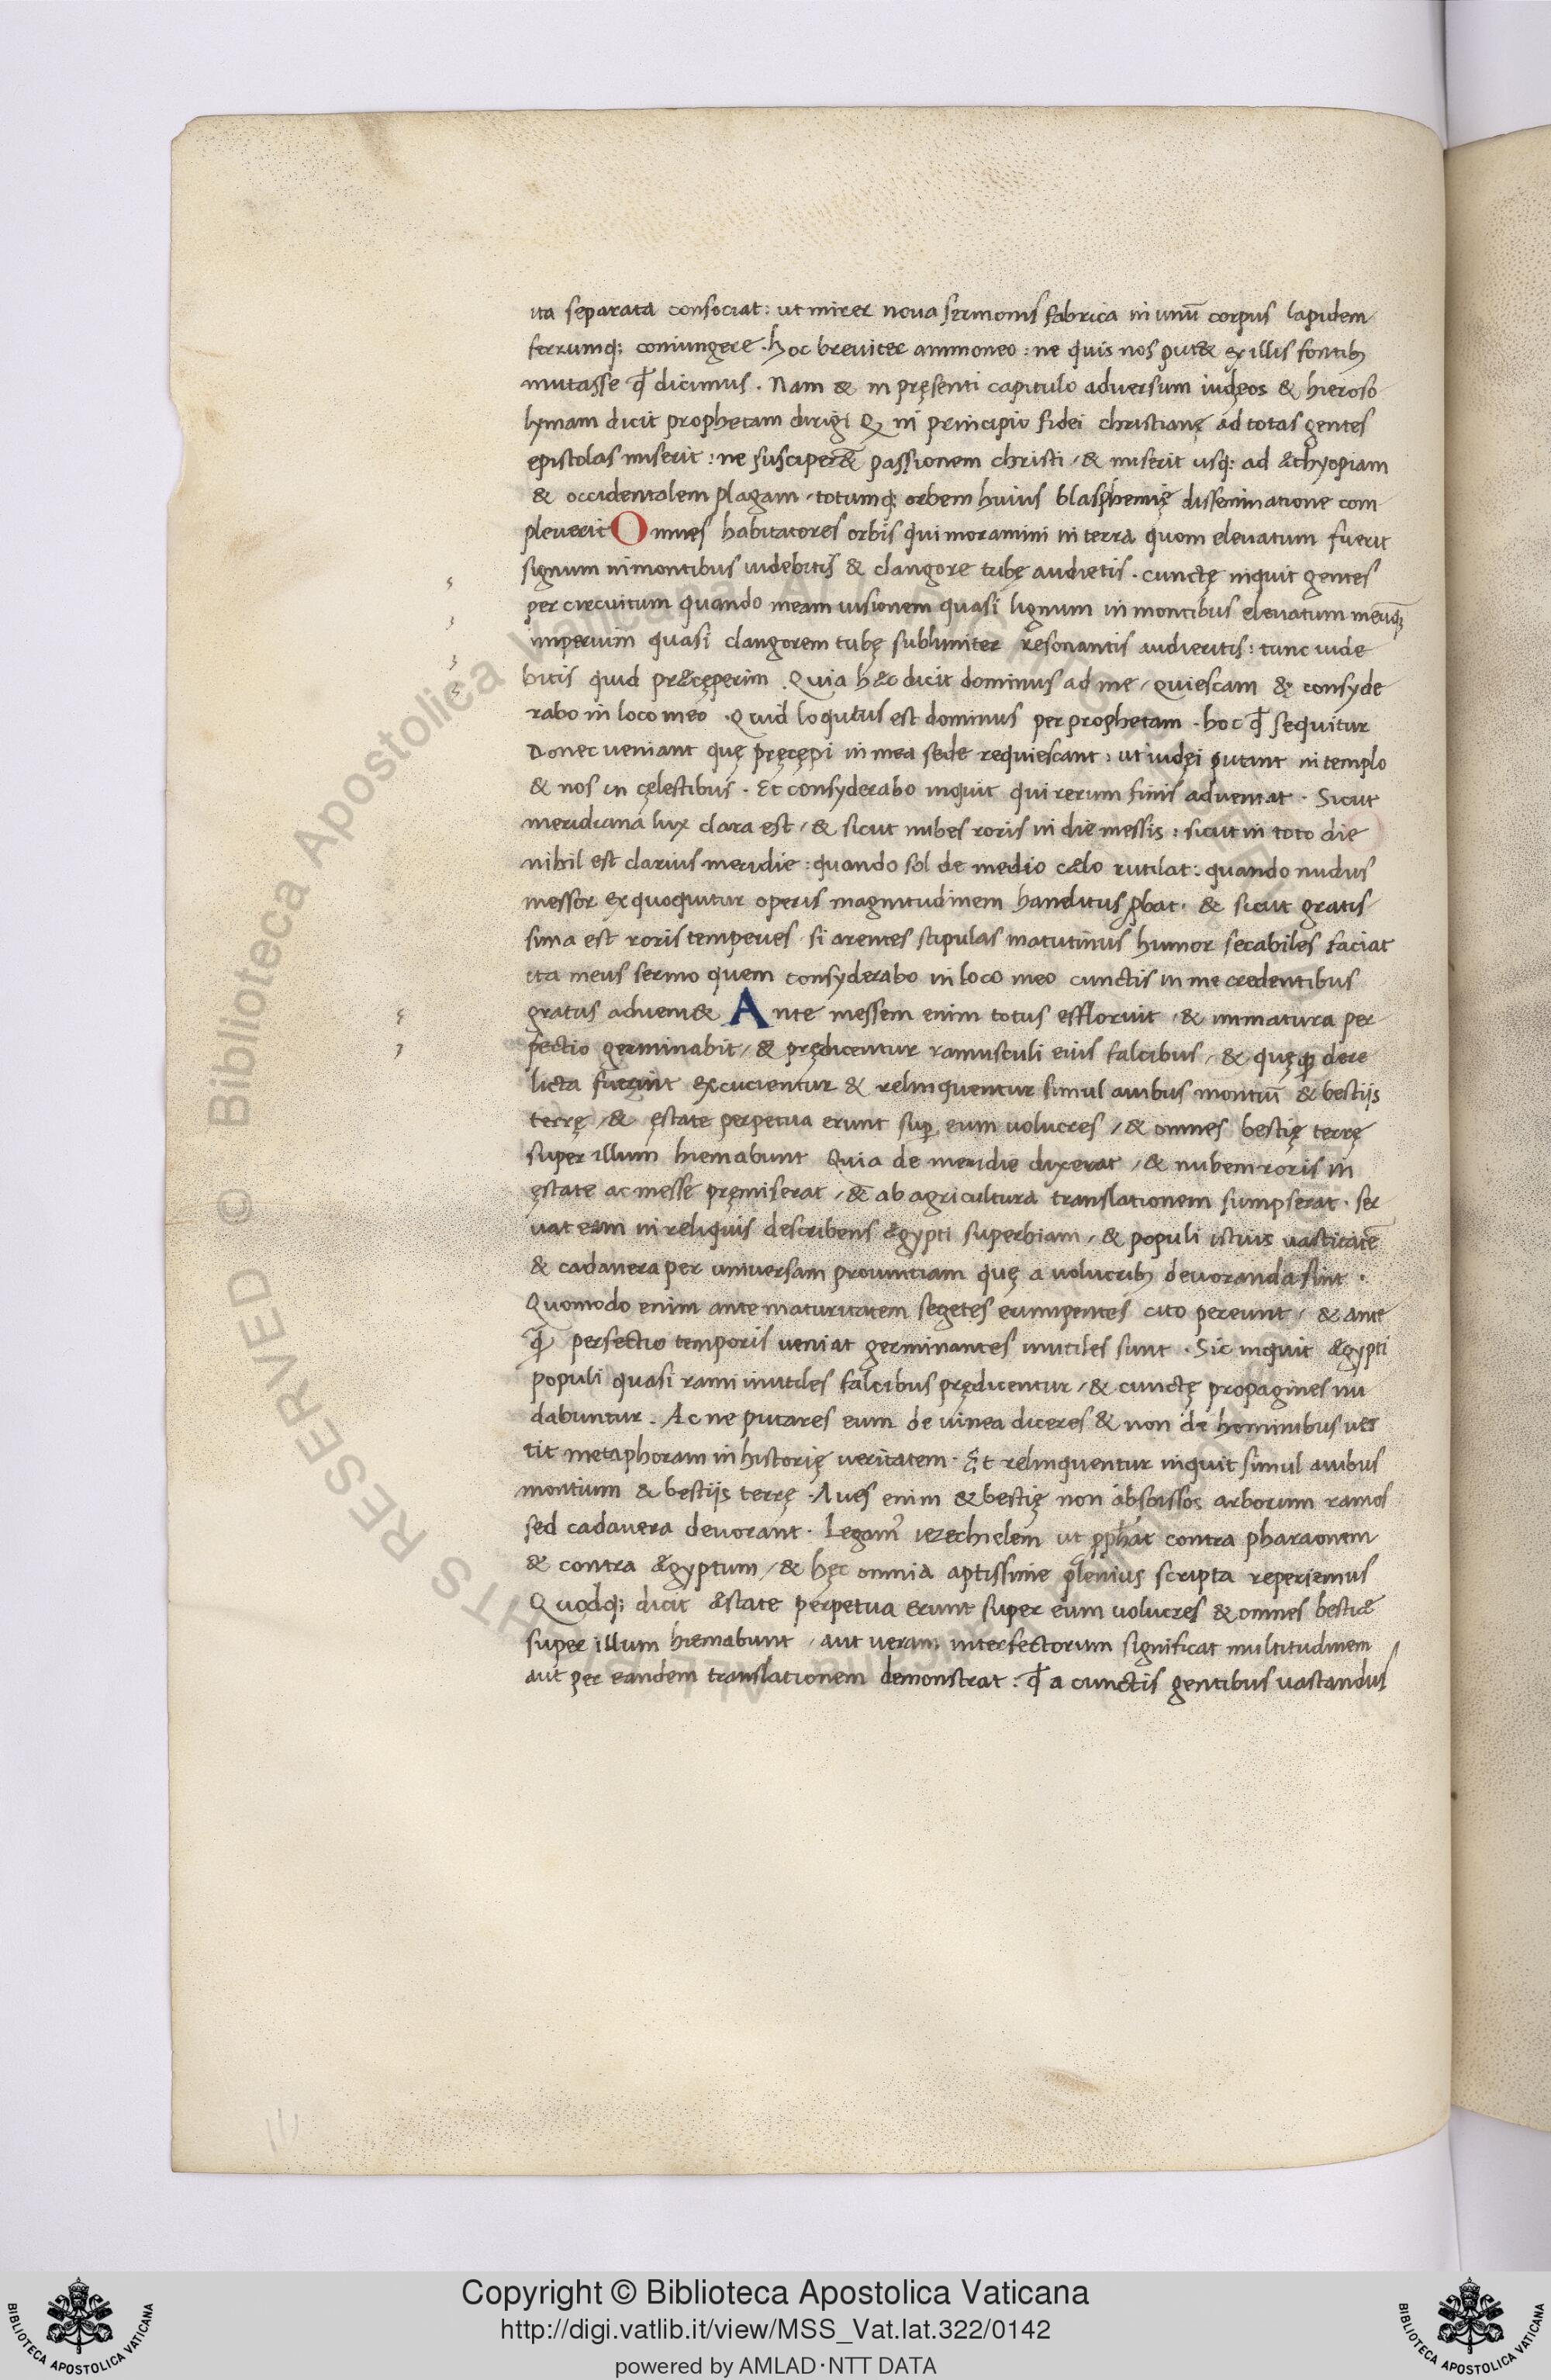 ita separata consociat: ut mirer noua sermonis fabrica in unū corpus lapidem
ferrumq; coniungere. hoc breuiter ammoneo: ne quis nos put& ex illis fontib;
mutasse qđ dicimus. Nam & in pręsenti capitulo adversum iudęos & hieroso
lymam dicit prophetam dirigi q in principio fidei christianę ad totas gentes
epistolas miserit: ne susciper& passionem christi / & miserit usq; ad æthyopiam
& occidentalem plagam / totumq; orbem huius blasphemię disseminatione com
pleuerit Omnes habitatores orbis qui moramini in terra quom eleuatum fuerit
signum in montibus uidebitis & clangore tubę audietis. cunctę inquit gentes
per circuitum quando meam uisionem quasi lignum in montibus eleuatum meūq;
imperium quasi clangorem tubę sublimiter resonantis audieritis: tunc uide
bitis quid præcęperim. Quia hæc dicit dominus ad me / quiescam & consyde
rabo in loco meo. Quid loqutus est dominus per prophetam. hoc qđ sequitur
Donec ueniant quę pręcępi in mea sede requiescant: ut iudęi putant in templo
& nos in cęlestibus. Et consyderabo inquit qui rerum finis adueniat. Sicut
meridiana lux clara est / & sicut nubes roris in die messis: sicut in toto die
nihil est clarius meridie: quando sol de medio cælo rutilat: quando nudus
messor exquoquitur operis magnitudinem hanelitus ꝓbat. & sicut gratis
sima est roris temperies si arentes stipulas matutinus humor secabiles faciat
ita meus sermo quem consyderabo in loco meo cunctis in me credentibus
gratus adueni& Ante messem enim totus effloruit / & immatura per
fectio germinabit / & pręcidentur ramusculi eius falcibus / & quęq; dere
licta fuerint excucientur & relinquentur simul auibus montiū & bestijs
terrę / & ęstate perpetua erunt suꝑ eum uolucres / & omnes bestię terrę
super illum hiemabunt Quia de meridie dixerat / & nubem roris in
ęstate ac messe pręmiserat / & ab agricultura translationem sumpserat. ser
uat eam in reliquis describens ægypti superbiam / & populi istius uastitatē
& cadauera per uniuersam prouintiam quę a uolucrib; deuoranda sint.
Quomodo enim ante maturitatem segetes erumpentes cito pereunt / & ante
q̄ perfectio temporis ueniat germinantes inutiles sunt. Sic inquit ægypti
populi quasi rami inutiles falcibus pręcidentur / & cunctę propagines nu
dabuntur. Ac ne putares eum de uinea diceres & non de hominibus uer
tit metaphoram in historię ueritatem. Et relinquentur inquit simul auibus
montium & bestijs terrę. Aues enim & bestię non abscissos arborum ramos
sed cadauera deuorant. Legam᾽ iezechielem ut ꝓph&at contra pharaonem
& contra ægyptum / & hęc omnia aptissime plenius scripta reperiemus
Quodq; dicit æstate perpetua erunt super eum uolucres & omnes bestiæ
super illum hiemabunt / aut ueram interfectorum significat multitudinem
aut per eandem translationem demonstrat: qđ a cunctis gentibus uastandus
Copyright © Biblioteca Apostolica Vaticana
http://digi.vatlib.it/view/MSS_Vat.lat.322/0142
powered by AMLAD·NTT DATA